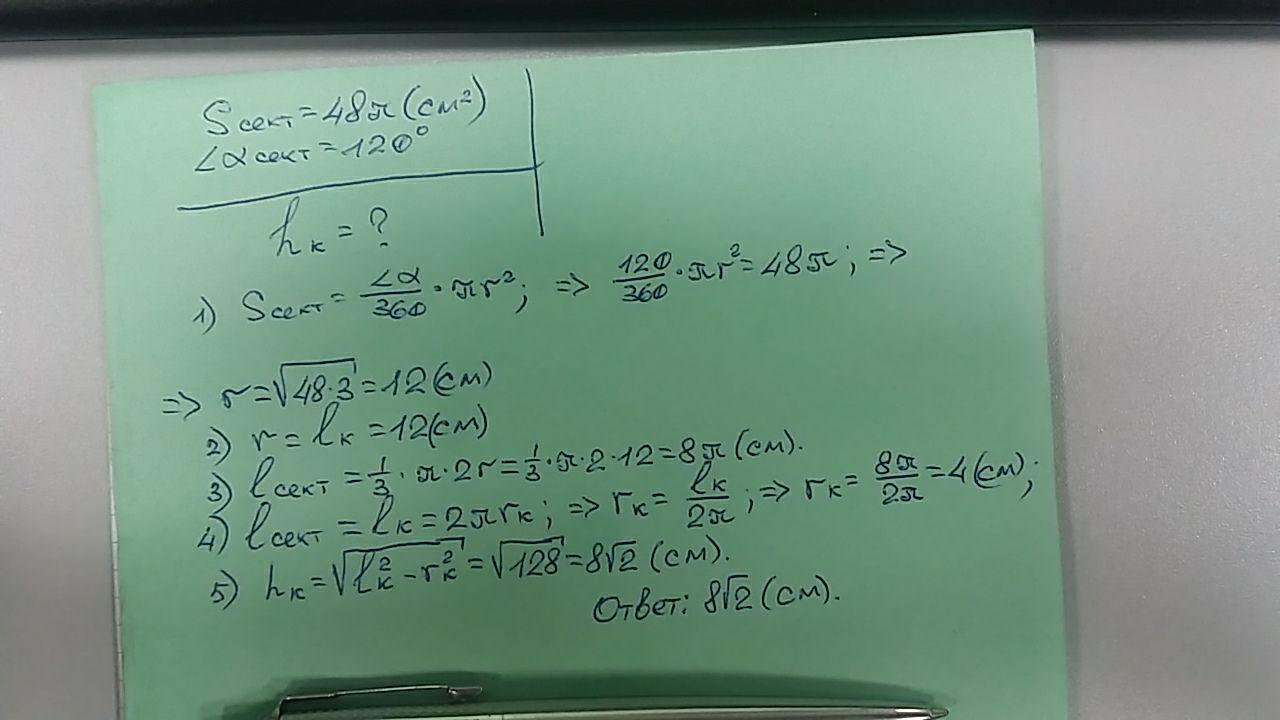 Sсект = 48π (см²)
∠α сект = 120°
hк = ?
1) Sсект = ∠α/360 · πr²; => 120/360 · πr² = 48π; =>
=> r = √(48·3) = 12 (см)
2) r = lк = 12 (см)
3) lсект = 1/3 · π · 2r = 1/3 · π · 2 · 12 = 8π (см).
4) lсект = lк = 2πrк; => rк = lк/2π; => rк = 8π/2π = 4 (см);
5) hк = √(lк² − rк²) = √128 = 8√2 (см).
Ответ: 8√2 (см).